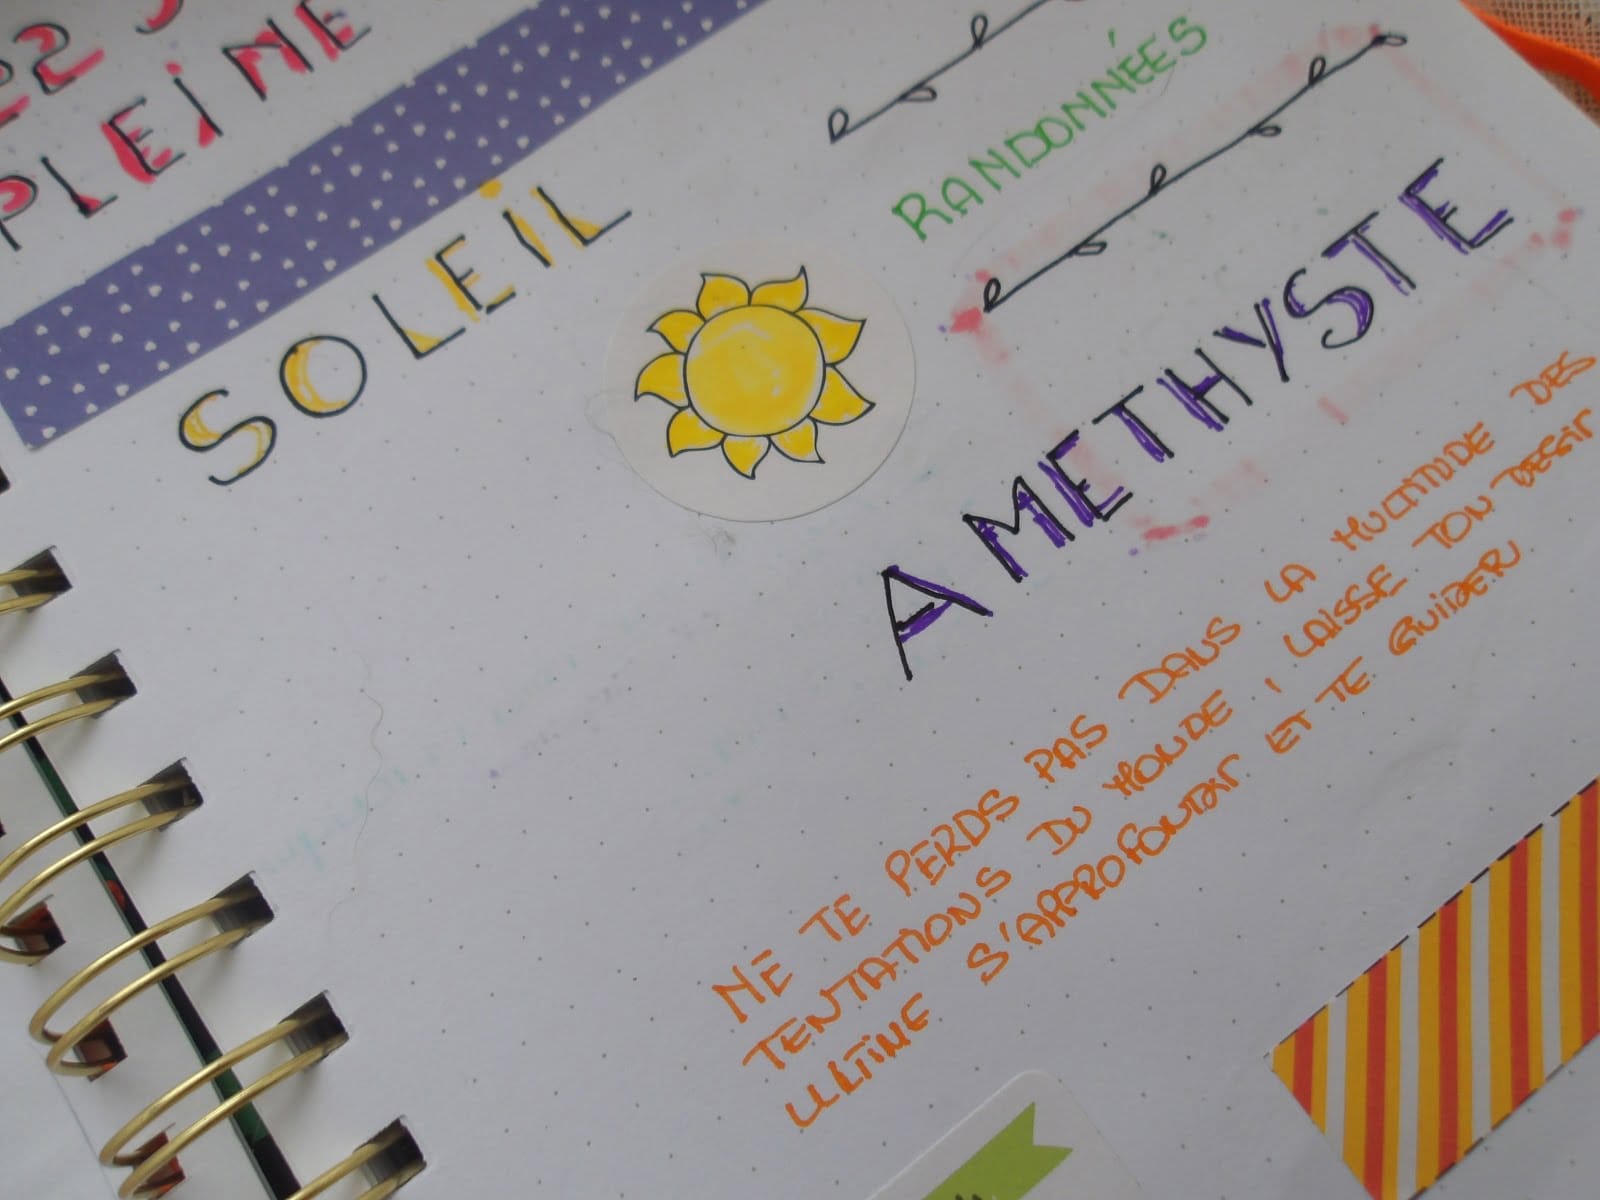 PLEINE
SOLEIL
RANDONNÉES
AMETHYSTE
NE TE PERDS PAS DANS LA MULTITUDE DES
TENTATIONS DU MONDE, LAISSE TON DESIR
ULTIME S'APPROFONDIR ET TE GUIDER